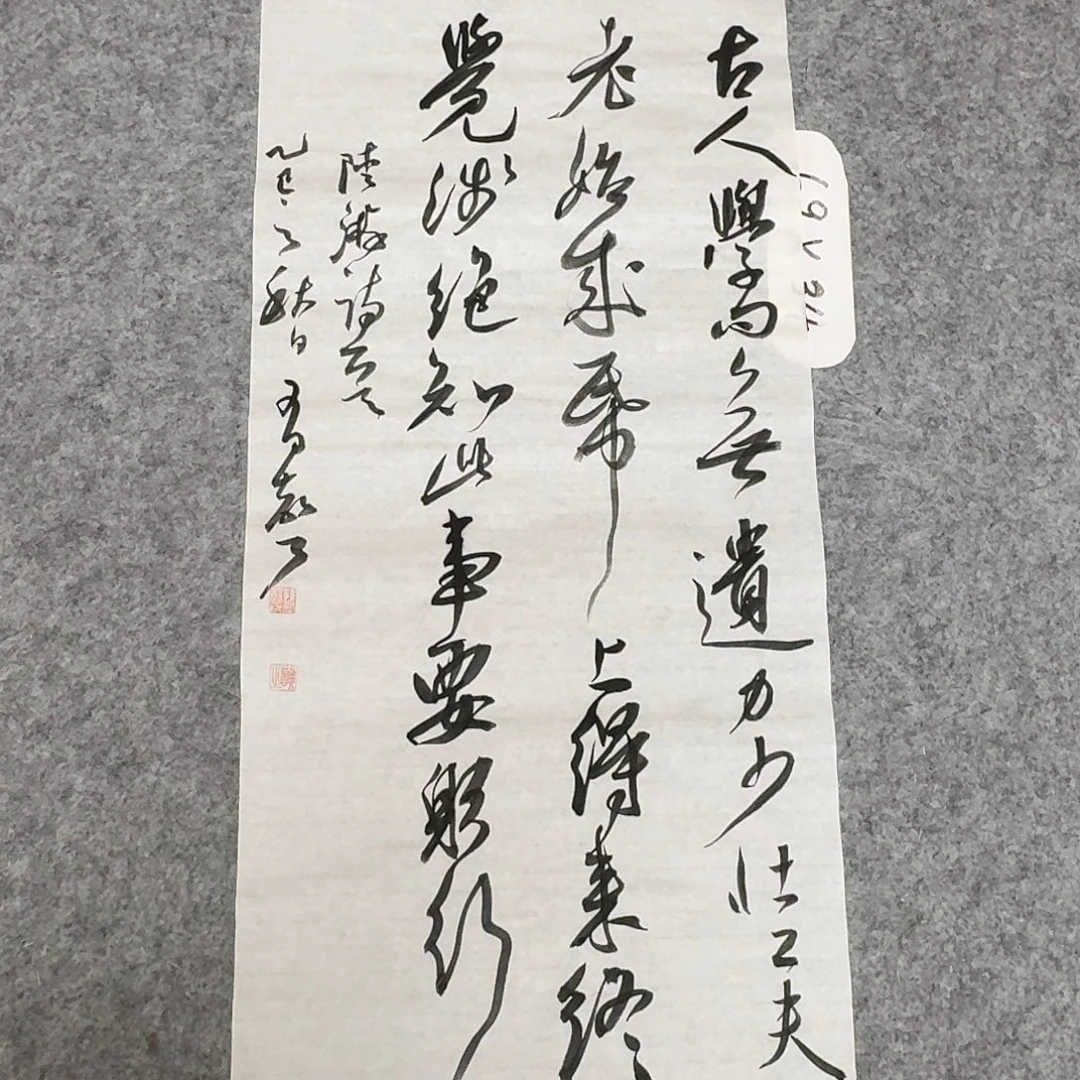 古人學問無遺力少壯工夫
老始成帋上得來終
覺淺絕知此事要躬行
陸游詩
乙巳之秋日